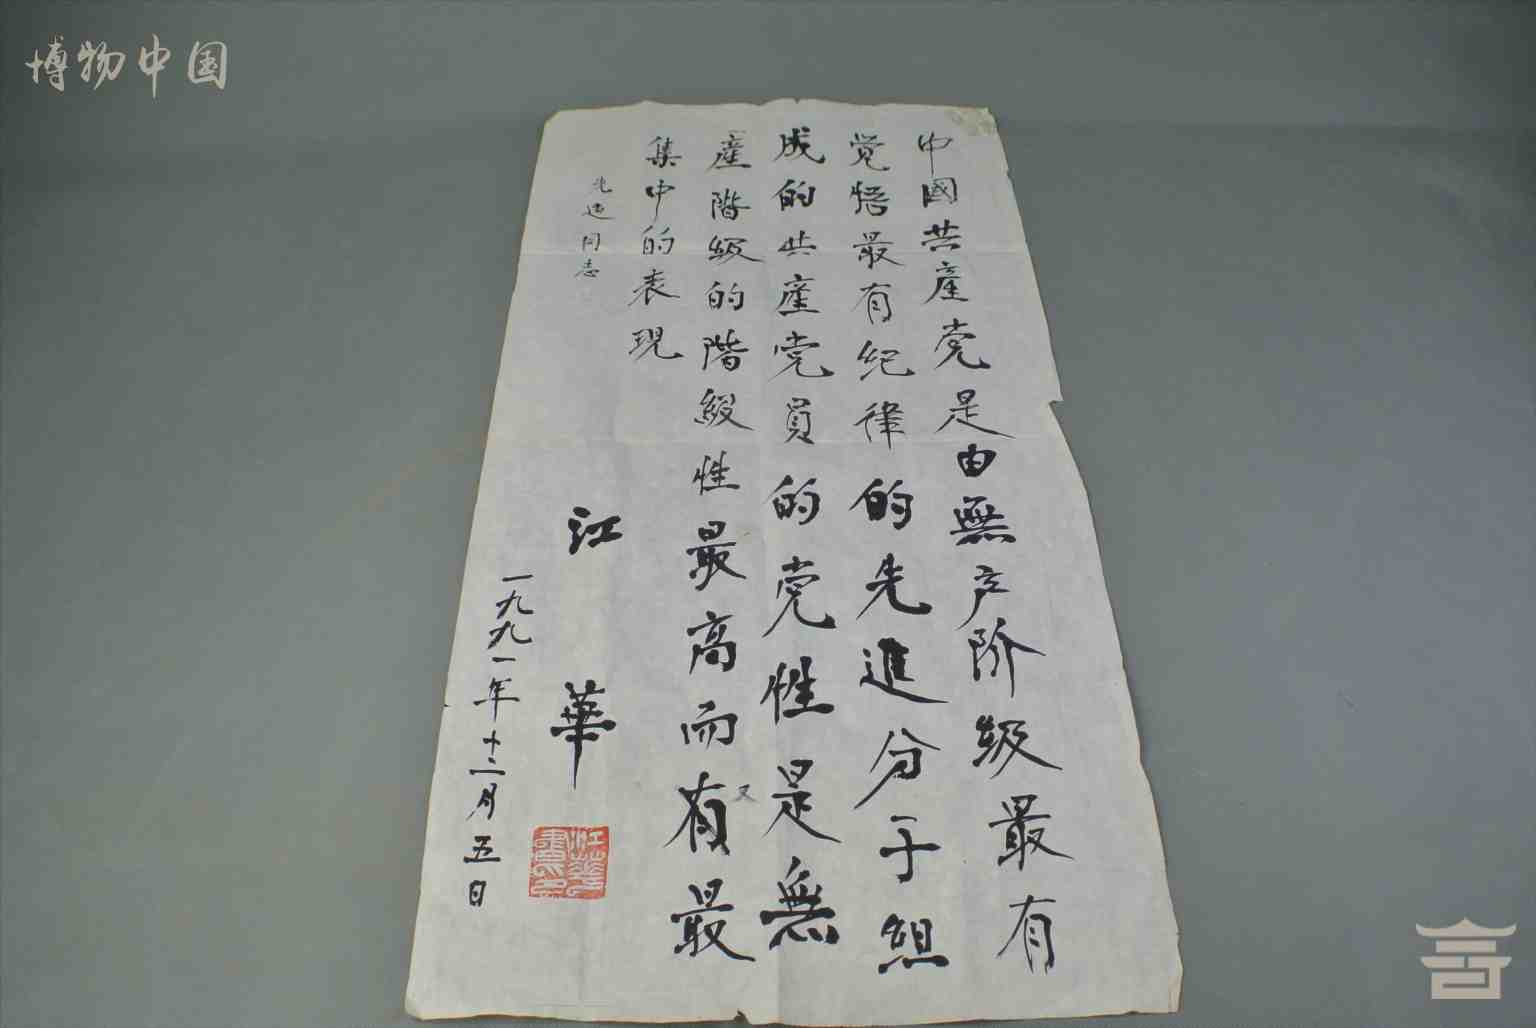 博物中国
中國共產党是由無产阶级最有
觉悟最有纪律的先進分子組
成的共產党員的党性是無
產階級的階級性最高而又有最
集中的表现
同志
江華
一九九一年十二月五日